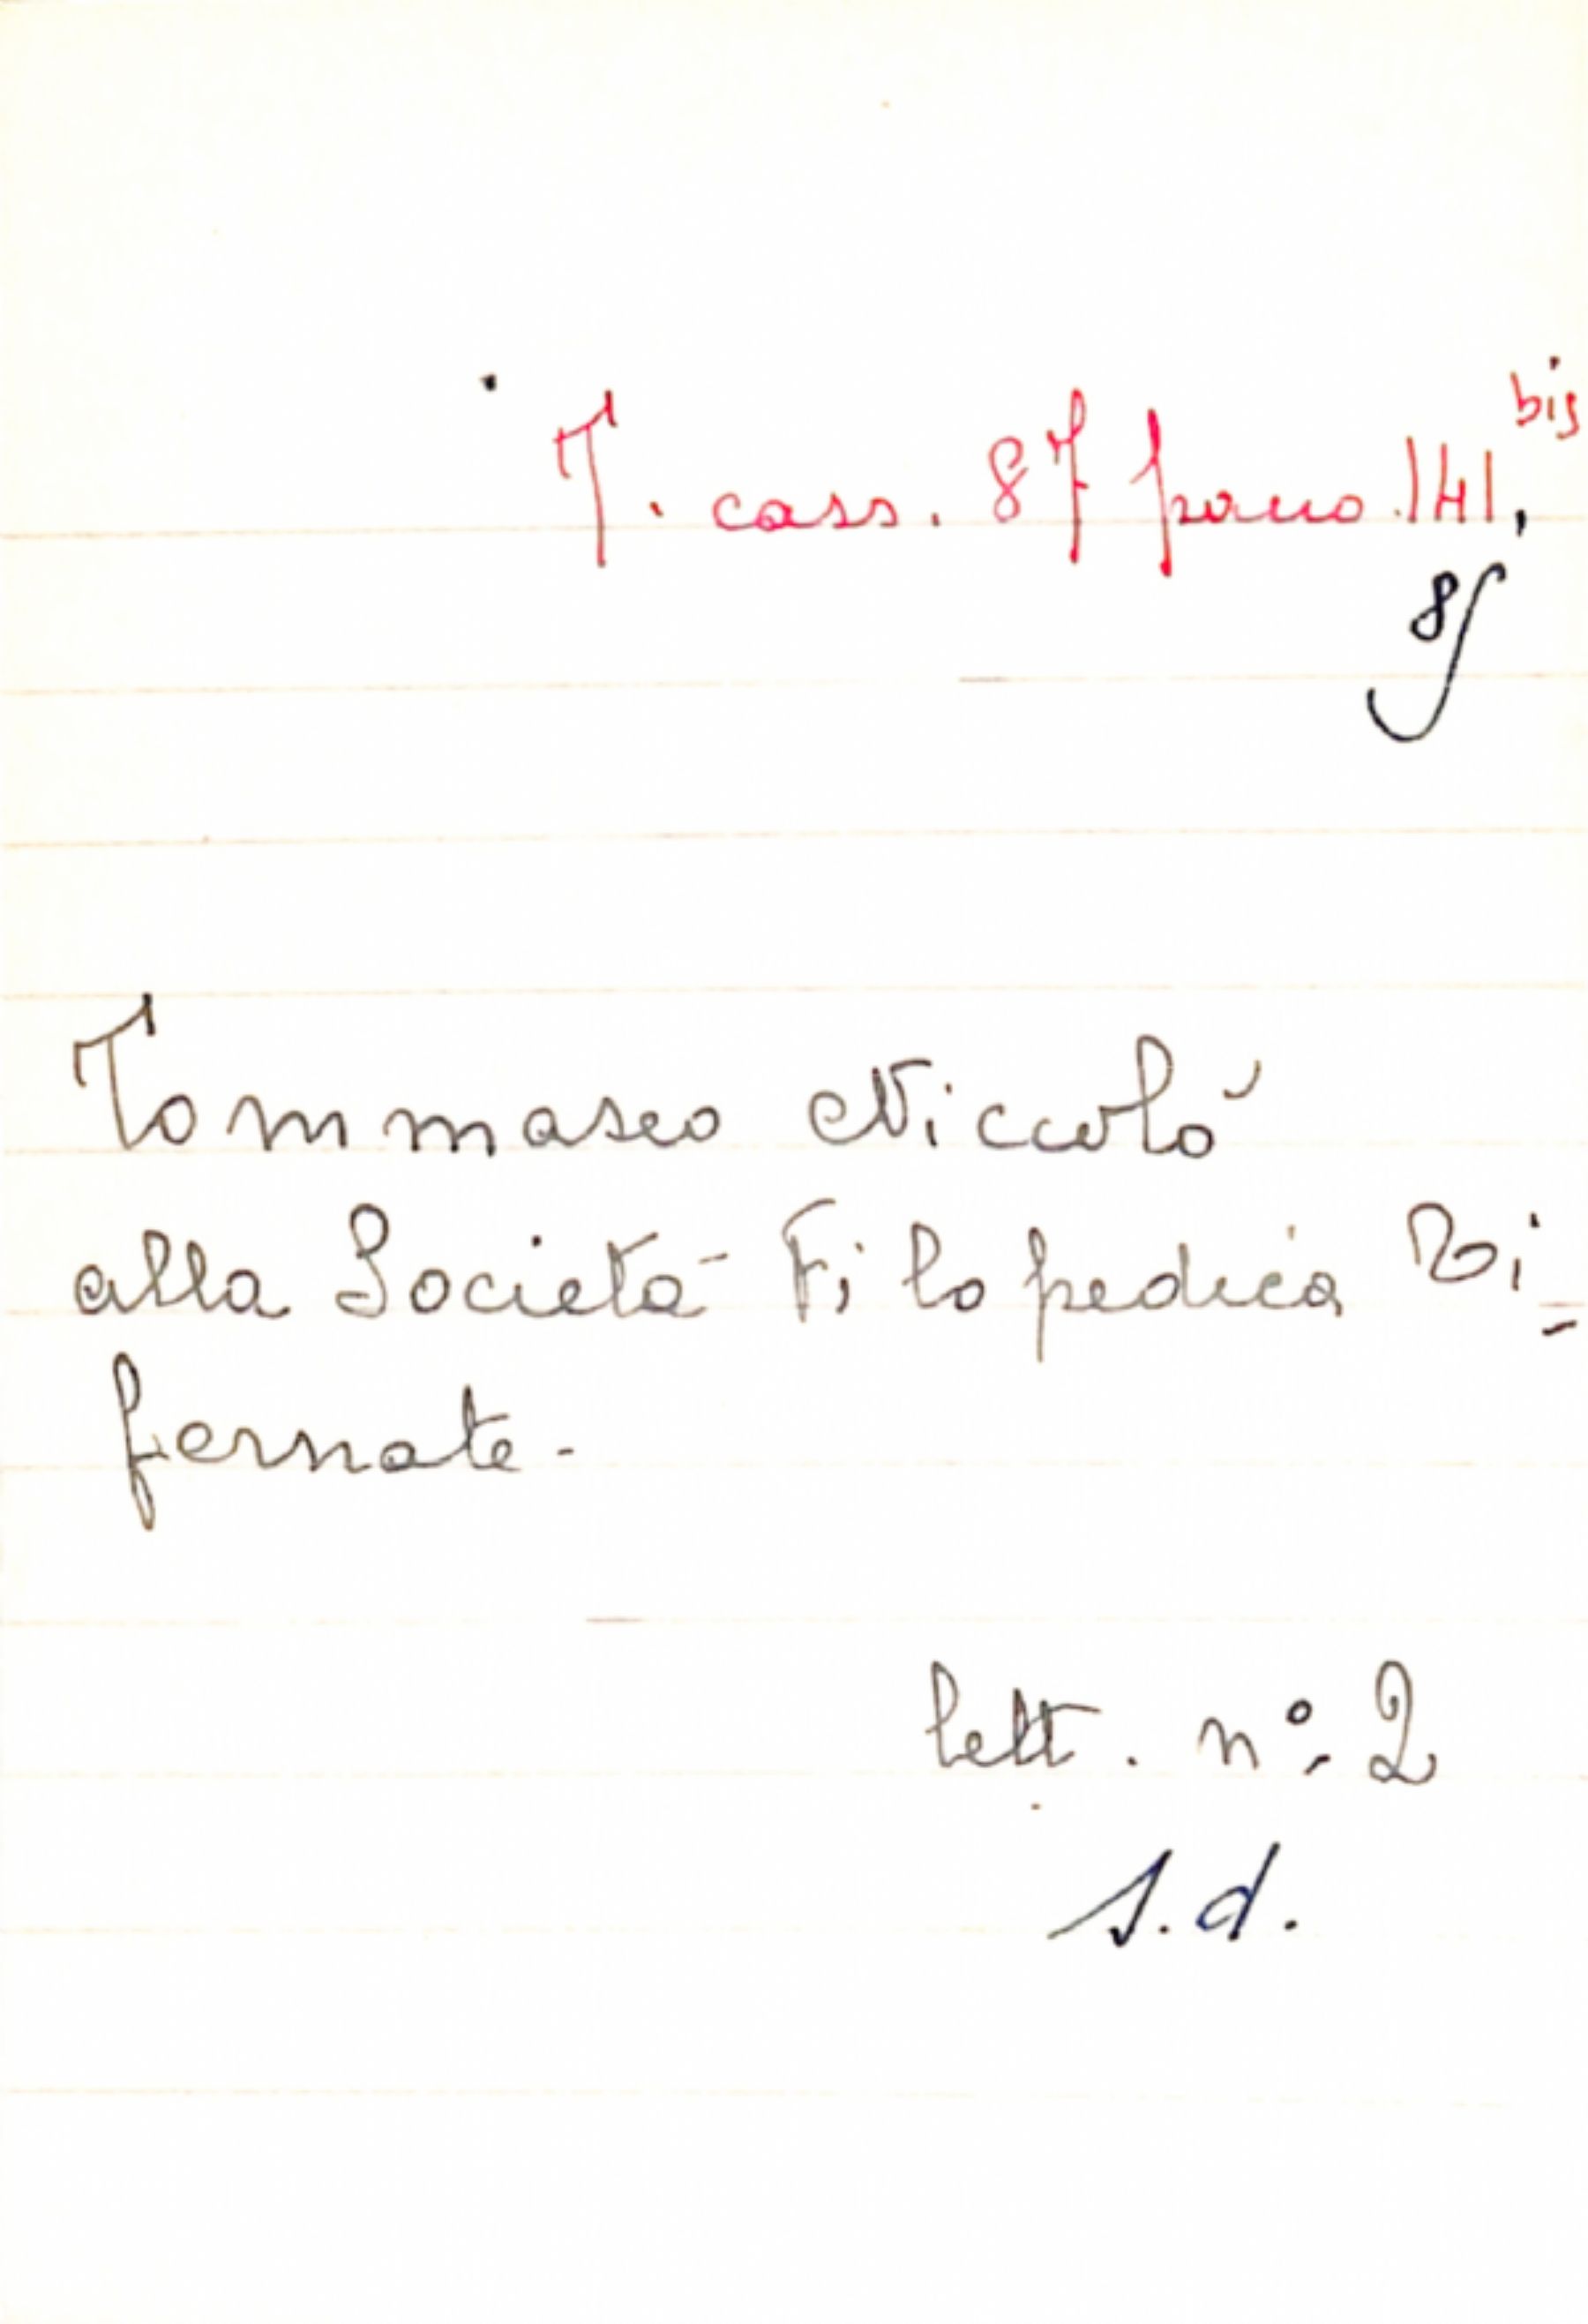 T. cass. 87 panno. 141, bis
8
Tommaseo Niccolò
alla Società Filopedica Ti=
fernate.
lett. nº. 2
s.d.